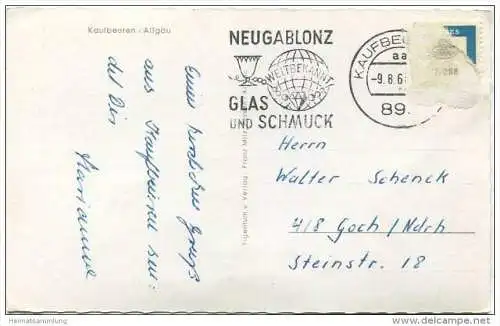 Kaufbeuren / Allgäu
NEUGABLONZ
WELTBEKANNT
GLAS
UND SCHMUCK
KAUFBE
aa
-9.8.6
89
Einen herzlichen Gruß
aus Kaufbeuren sen:
det Dir
Marianne
Eigentum u. Verlag Franz Milz
Herrn
Walter Schenck
418 Goch/Ndrh
Steinstr. 18
Heimatsammlung
www.delcampe.net